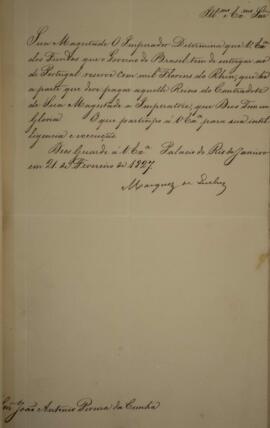 Ill.mo Ex.mo Snr.
Sua Magestade O Imperador Determina que V. Ex.a
dos Fundos que o Governo do Brasil tem de entregar ao
de Portugal reserve Cem mil Florins do Rheno, que he
a parte que deve pagar aquelle Reino do Contradote
de Sua Magestade a Imperatriz, que Deos Tem em
Gloria O que participo a V. Ex.a para sua intel-
ligencia e execução
Deos Guarde a V. Ex.a Palacio do Rio de Janeiro
em 21 de Fevereiro de 1827.
Marquez de Queluz
Snr. João Antonio Pereira da Cunha